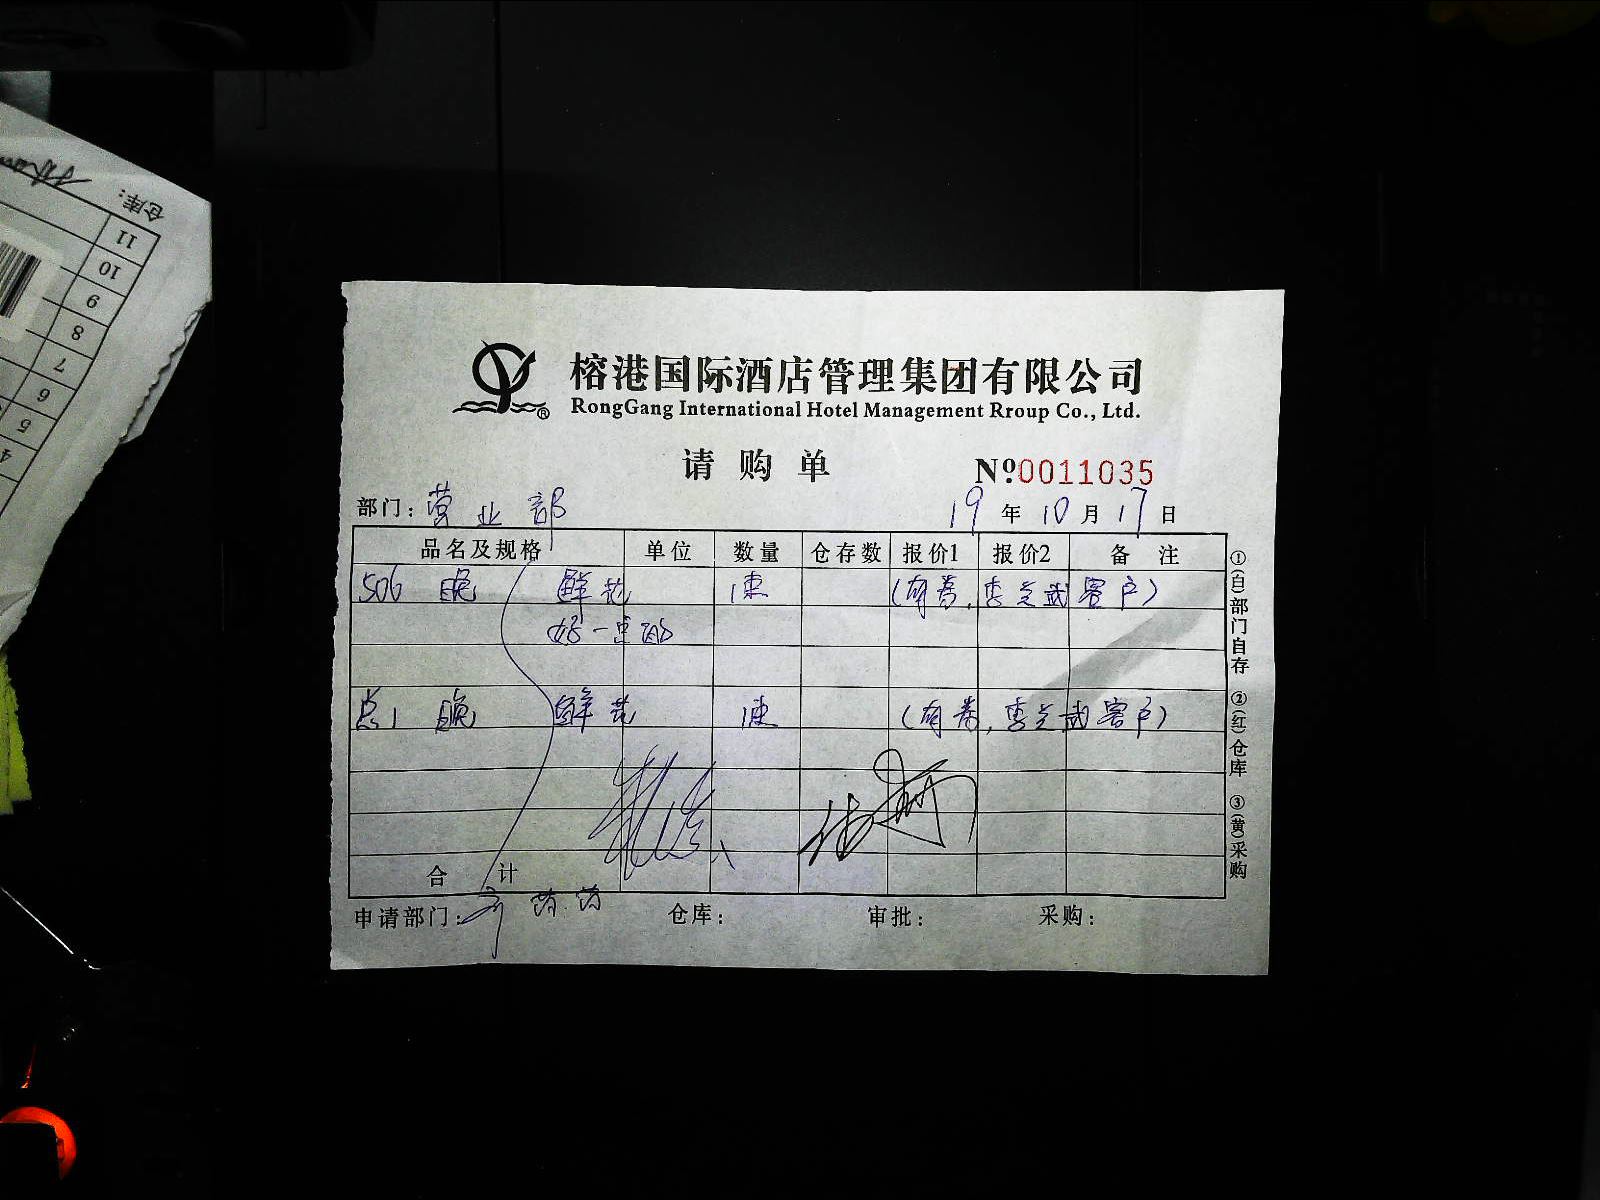 榕港国际酒店管理集团有限公司
RongGang International Hotel Management Rroup Co., Ltd.
请购单
№0011035
部门：营业部
19年10月17日
品名及规格 单位 数量 仓存数 报价1 报价2 备注
506 晚 鲜花 1束 (有寿，李 武客户)
好一点的
总1 晚 鲜花 1束 (有寿，李 武客户)
合计
申请部门： 仓库： 审批： 采购：
①(白)部门自存 ②(红)仓库 ③(黄)采购
仓库：
11
10
9
8
7
6
5
4